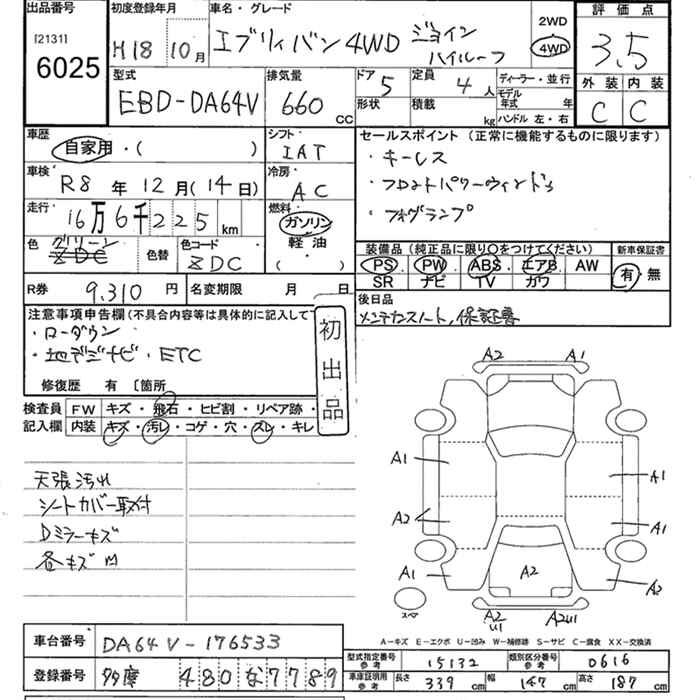 出品番号 初度登録年月 車名・グレード 評価点
[2131] 6025 H18 10月 エブリィバン 4WD ジョイン ハイルーフ 2WD 4WD 3.5
型式 排気量 ドア 5 定員 4人 ディーラー・並行 外装 内装
EBD-DA64V 660 CC 形状 積載 kg モデル年式 年 ハンドル 左・右 C C
車歴 シフト セールスポイント (正常に機能するものに限ります)
自家用・( ) IAT ・キーレス
車検 R8 年 12 月 (14 日) 冷房 AC ・フロントパワーウィンドウ
走行 16万6千225km 燃料 ガソリン ・フォグランプ
軽油 ( )
色 グリーン ZDC 色替 色コード ZDC 装備品 (純正品に限り○をつけてください) 新車保証書
PS. PW. ABS. エアB. AW 有・無
SR ナビ TV カワ
R券 9,310 円 名変期限 月 日 後日品
注意事項申告欄 (不具合内容等は具体的に記入して下 メンテナンスノート, 保証書
・ローダウン 初出品
・地デジナビ・ETC
修復歴 有 〔箇所
検査員 FW キズ・飛石・ヒビ割・リペア跡・
記入欄 内装 キズ・汚レ・コゲ・穴・スレ・キレ
A2 A1
天張汚れ
シートカバー取付
Dミラーキズ
各キズ凹
A1 A1
A2 A1
A1 A2 A2
スペ A2 U1 A2U1
A-キズ E-エクボ U-凹み W-補修跡 S-サビ C-腐食 XX-交換済
車台番号 DA64V-176533 型式指定番号 参考 15132 類別区分番号 参考 0616
登録番号 多摩 480 な 7789 車庫証明用 参考 長さ 339 cm 幅 147 cm 高さ 187 cm